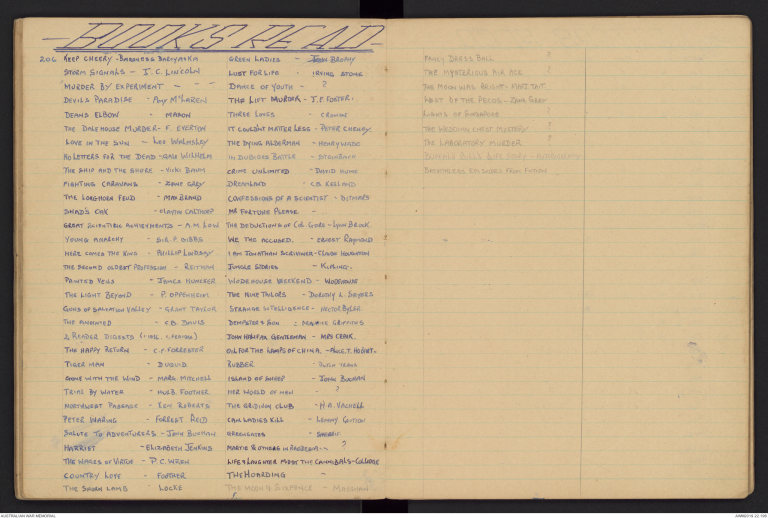 BOOKS READ
206 KEEP CHEERY - BARONESS BARCYNSKA
STORM SIGNALS - J.C. LINCOLN
MURDER BY EXPERIMENT - - -
DEVILS PARADISE - AMY McLAREN
DEANS ELBOW - MASON
THE DALEHOUSE MURDER - F. EVERTON
LOVE IN THE SUN - LEO WALMSLEY
NO LETTERS FOR THE DEAD - GALE WILHELM
THE SHIP AND THE SHORE - VICKI BAUM
FIGHTING CARAVANS - ZANE GREY
THE LONGHORN FEUD - MAX BRAND
DEAD'S OAK - CLAYTON CALTHROP
GREAT SCIENTIFIC ACHIEVEMENTS - A.M. LOW
YOUNG ANARCHY - SIR. P. GIBBS
HERE COMES THE KING - PHILLIP LINDSAY
THE SECOND OLDEST PROFESSION - REITMAN
PAINTED VEILS - JAMES HUNEKER
THE LIGHT BEYOND - P. OPPENHEIM
GUNS OF SALVATION VALLEY - GRANT TAYLOR
THE ANOINTED - C.B. DAVIS
2 READER DIGESTS
THE HAPPY RETURN - C.F. FORRESTER
TIGER MAN - DUGUID
GONE WITH THE WIND - MARG. MITCHELL
TRIAL BY WATER - HULB. FOOTNER
NORTHWEST PASSAGE - KEN ROBERTS
PETER WARING - FORREST REID
SALUTE TO ADVENTURERS - JOHN BUCHAN
HARRIET - ELIZABETH JENKINS
THE WAGES OF VIRTUE - P.C. WREN
COUNTRY LOVE - FOOTNER
THE SHORN LAMB - LOCKE
GREEN LADIES - JOHN BROPHY
LUST FOR LIFE - IRVING STONE
DANCE OF YOUTH - ?
THE LIFT MURDER - T.F. FOSTER.
THREE LOVES - CRONINE
IT COULDN'T MATTER LESS - PETER CHENEY
THE DYING ALDERMAN - HENRY WADE
IN DUBIOUS BATTLE - STEINBACK
CRIME UNLIMITED - DAVID HUME
DREAMLAND - C.B. KELLAND
CONFESSIONS OF A SCIENTIST - DITMARS
MR FORTUNE PLEASE -
THE DEDUCTIONS OF COL. GORE - LYNN BROCK
WE THE ACCUSED. - ERNEST RAYMOND
I AM JONATHAN SCRIVENER - CLAUDE HOUGHTON
JUNGLE STORIES - KIPLING.
WODEHOUSE WEEKEND - WODEHOUSE
THE NINE TAILORS - DOROTHY L. SAYERS
STRANGE INTELLIGENCE - HECTOR BYLER
DEMPSTER & SON : MAURICE GRIFFITHS
JOHN HALIFAX GENTLEMAN - MRS CRAIK.
OIL FOR THE LAMPS OF CHINA. - ALICE. T. HOBART.
RUBBER -
ISLAND OF SHEEP - JOHN BUCHAN
HER WORLD OF MEN - ?
THE GRIDIRON CLUB - H.A. VACHELL
CAN LADIES KILL - LEMMY CAUTION
GREENGATES - SHERRIFF
MARTIE & OTHERS IN RHODESIA - ?
LIFE & LAUGHTER MIDST THE CANNIBALS - COLLODGE
THE HOARDING -
THE MOON & SIXPENCE - MAUGHAM
FANCY DRESS BALL ?
THE MYSTERIOUS AIR ACE ?
THE MOON WAS BRIGHT - MATT TAIT.
WEST OF THE PECOS - ZANE GREY
LIGHTS OF SINGAPORE ?
THE WOODEN CHEST MYSTERY ?
THE LABORATORY MURDER ?
BUFFALO BILL'S LIFE STORY - AUTOBIOGRAPHY
BREATHLESS EPISODES FROM FICTION
AUSTRALIAN WAR MEMORIAL